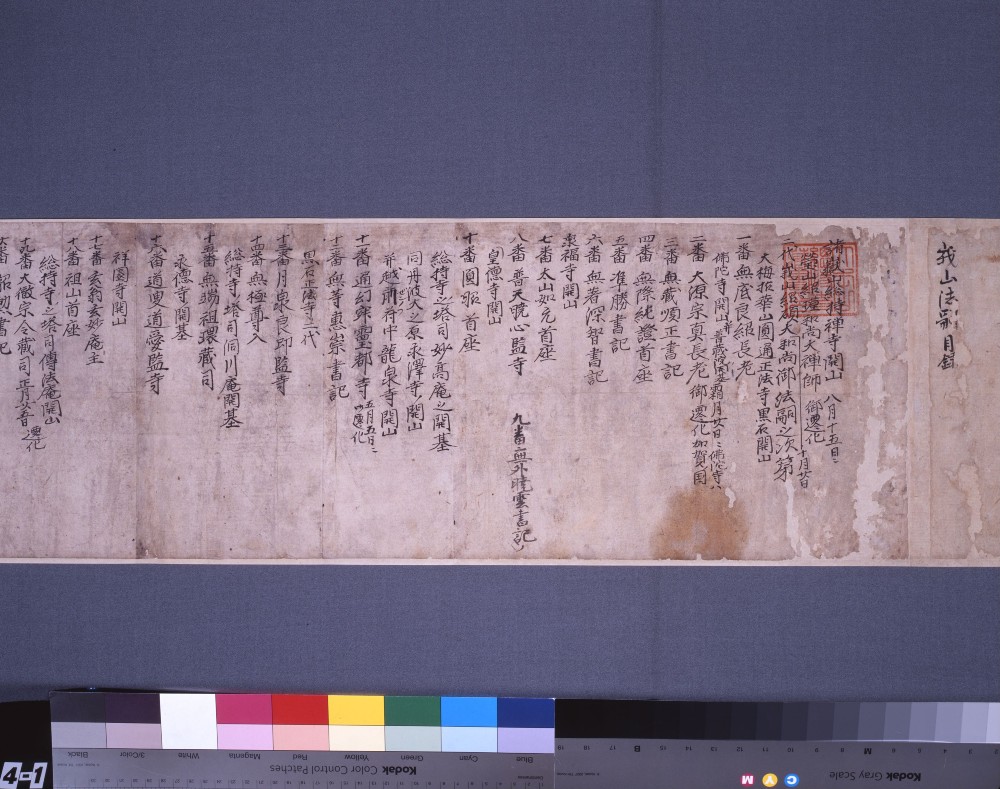 峩山法嗣目録
諸嶽惣持禅寺開山 八月十五日
瑩山紹瑾和尚大禅師 御遷化
二代峩山紹碩大和尚御法嗣之次第 十月廿日
大梅拈華山圓通正法寺黒石開山
一番 無底良韶長老
佛陀寺開山 普蔵院開基 霜月廿日 佛陀寺
二番 大源宗真長老 御遷化 加賀国
三番 無我順正書記
四番 無際純證首座
五番 准勝書記
六番 無著深智書記
泉福寺開山
七番 太山如元首座
八番 普天暁心監寺
皇徳寺開山
九番 無外暁雲書記
十番 圓照首座
総持寺之塔司妙高庵之開基
同丹波大之原永澤寺開山
并越前府中龍泉寺開山
十一番 通幻寂霊都寺 五月五日遷化
十二番 無等恵崇書記
黒石正法寺二代
十三番 月泉良印監寺
十四番 無極尊入
総持寺塔司洞川庵開基
十五番 無端祖環蔵司
永徳寺開基
十六番 道叟道愛監寺
祥園寺開山
十七番 玄翁玄妙庵主
十八番 祖山首座
総持寺之塔司傳法庵開山
十九番 大徹宗令蔵司 正月廿五日遷化
4-1
Black 3/Color White Magenta Red Yellow Green Cyan Blue
Kodak Color Control Patches
Kodak Gray Scale
C Y M